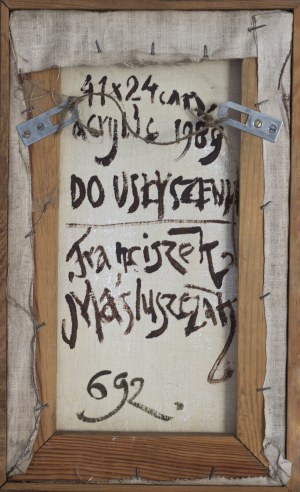 41x24cm
acryl 1989
DO USŁYSZENIA
Franciszek
Maśluszczak
692.